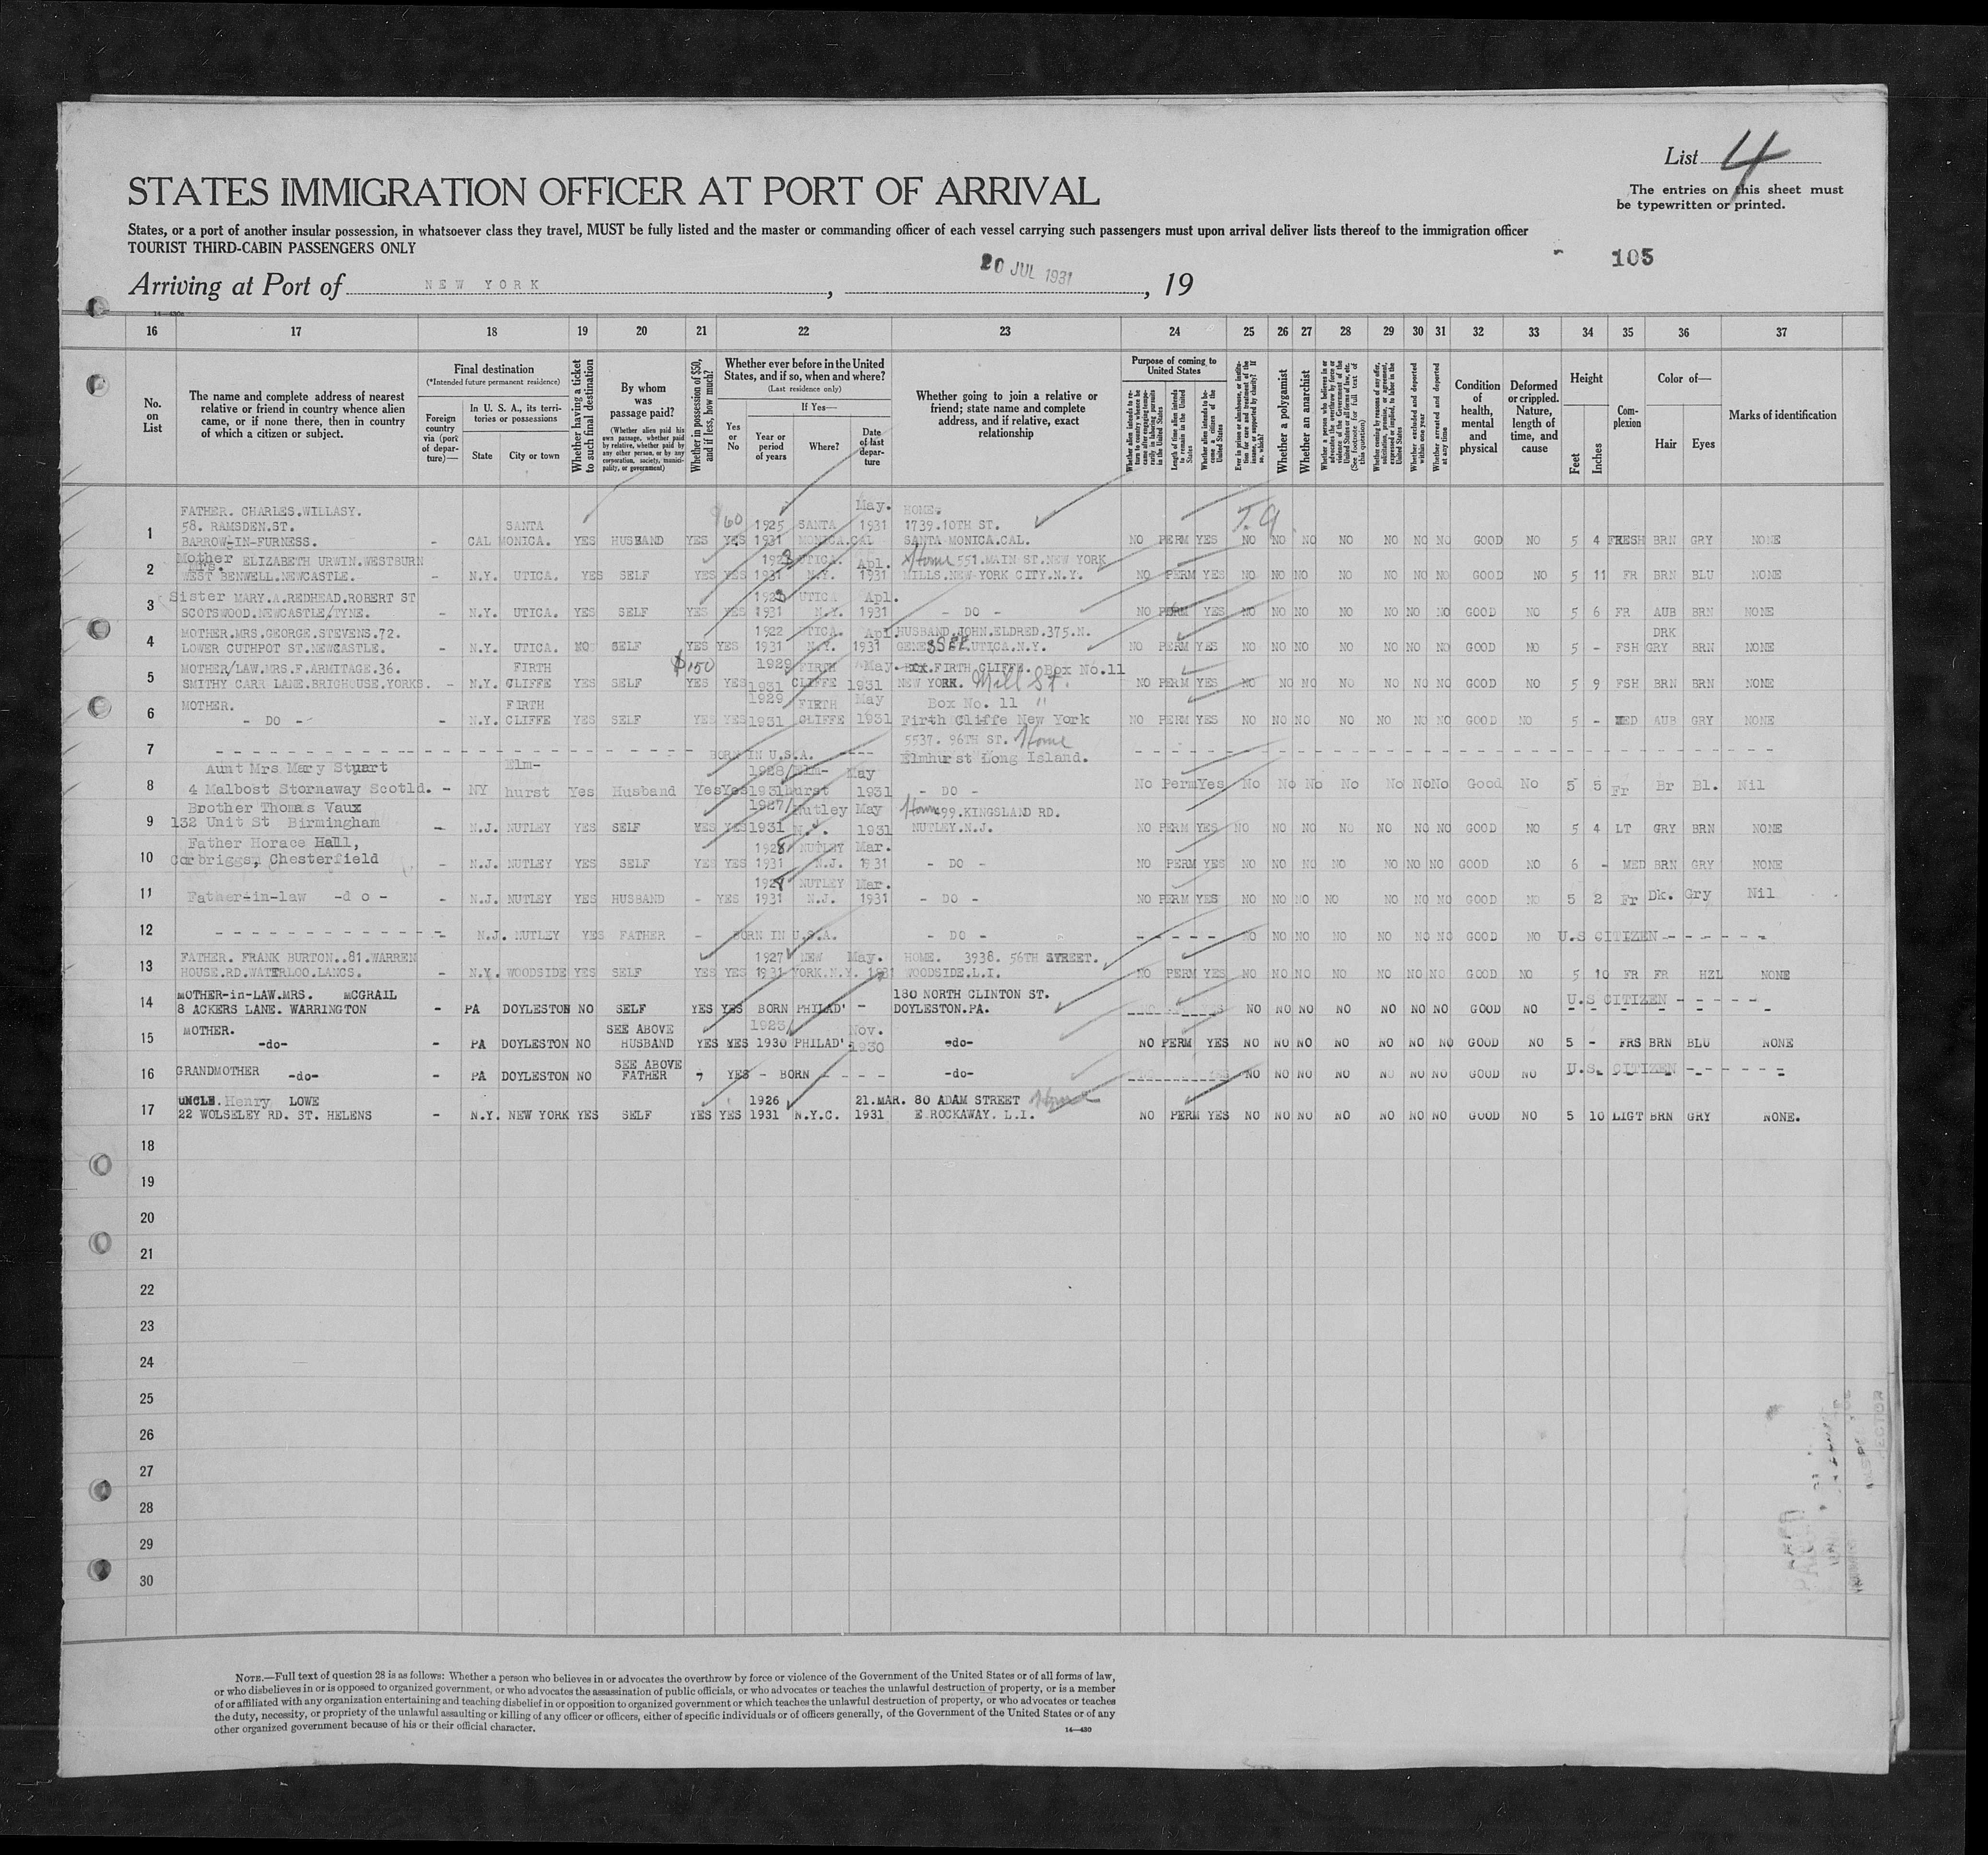 List 4
The entries on this sheet must
be typewritten or printed.
STATES IMMIGRATION OFFICER AT PORT OF ARRIVAL
States, or a port of another insular possession, in whatsoever class they travel, MUST be fully listed and the master or commanding officer of each vessel carrying such passengers must upon arrival deliver lists thereof to the immigration officer
TOURIST THIRD-CABIN PASSENGERS ONLY
105
Arriving at Port of NEW YORK, 20 JUL 1931, 19
16 17 18 19 20 21 22 23 24 25 26 27 28 29 30 31 32 33 34 35 36 37
No. on List
The name and complete address of nearest relative or friend in country whence alien came, or if none there, then in country of which a citizen or subject.
Final destination
(*Intended future permanent residence)
Foreign country via (port of departure)—
In U. S. A., its territories or possessions
State City or town
Whether having a ticket to such final destination
By whom was passage paid?
(Whether alien paid his own passage, whether paid by relative, whether paid by any other person, or by any corporation, society, municipality, or government)
Whether in possession of $50, and if less, how much?
Whether ever before in the United States, and if so, when and where?
(Last residence only)
Yes or No
If Yes—
Year or period of years
Where?
Date of last departure
Whether going to join a relative or friend; state name and complete address, and if relative, exact relationship
Purpose of coming to United States
Whether alien intends to return to country whence he came after engaging temporarily in laboring pursuits in the United States
Length of time alien intends to remain in the United States
Whether alien intends to become a citizen of the United States
Ever in prison or almshouse, or institution for care and treatment of the insane, or supported by charity? If so, which?
Whether a polygamist
Whether an anarchist
Whether a person who believes in or advocates the overthrow by force or violence of the Government of the United States or of all forms of law, etc. (See footnote for full text of this question)
Whether coming by reasons of any offer, solicitation, promise, or agreement, expressed or implied, to labor in the United States
Whether excluded and deported within one year
Whether arrested and deported at any time
Condition of health, mental and physical
Deformed or crippled. Nature, length of time, and cause
Height
Feet Inches
Complexion
Color of—
Hair Eyes
Marks of identification
FATHER. CHARLES.WILLASY. May. HOME.
58. RAMSDEN.ST. SANTA $60 1925 SANTA 1931 1739.10TH ST. T.9.
1 BARROW-IN-FURNESS. - CAL MONICA. YES HUSBAND YES YES 1931 MONICA.CAL SANTA MONICA.CAL. NO PERM YES NO NO NO NO NO NO NO GOOD NO 5 4 FRESH BRN GRY NONE
Mother Mrs. ELIZABETH URWIN.WESTBURN 1923 UTICA. Apl. Home 551.MAIN ST.NEW YORK
2 WEST BENWELL.NEWCASTLE. - N.Y. UTICA. YES SELF YES YES 1931 N.Y. 1931 MILLS.NEW YORK CITY.N.Y. NO PERM YES NO NO NO NO NO NO NO GOOD NO 5 11 FR BRN BLU NONE
Sister MARY.A.REDHEAD.ROBERT ST 1923 UTICA Apl.
3 SCOTSWOOD.NEWCASTLE/TYNE. - N.Y. UTICA. YES SELF YES YES 1931 N.Y. 1931 - DO - NO PERM YES NO NO NO NO NO NO NO GOOD NO 5 6 FR AUB BRN NONE
MOTHER.MRS.GEORGE.STEVENS.72. 1922 UTICA. Apl. HUSBAND.JOHN.ELDRED.375.N. DRK
4 LOWER CUTHPOT ST.NEWCASTLE. - N.Y. UTICA. NO SELF YES YES 1931 N.Y. 1931 GENESEE UTICA.N.Y. NO PERM YES NO NO NO NO NO NO NO GOOD NO 5 - FSH GRY BRN NONE
MOTHER/LAW.MRS.F.ARMITAGE.36. FIRTH $150 1929 FIRTH May. BOX.FIRTH CLIFFE. Box No.11
5 SMITHY CARR LANE.BRIGHOUSE.YORKS. - N.Y. CLIFFE YES SELF YES YES 1931 CLIFFE 1931 NEW YORK. Mill St. NO PERM YES NO NO NO NO NO NO NO GOOD NO 5 9 FSH BRN BRN NONE
MOTHER. FIRTH 1929 FIRTH May Box No. 11 "
6 - DO - - N.Y. CLIFFE YES SELF YES YES 1931 CLIFFE 1931 Firth Cliffe New York NO PERM YES NO NO NO NO NO NO NO GOOD NO 5 - MED AUB GRY NONE
5537. 96TH ST. Home
7 - - - - BORN IN U.S.A. - - - - Elmhurst Long Island. - - - -
Aunt Mrs Mary Stuart Elm- 1928/ Elm- May
8 4 Malbost Stornaway Scotld. - NY hurst Yes Husband Yes Yes 1931 hurst 1931 - DO - No Perm Yes No No No No No No No Good No 5 5 Fr Br Bl. Nil
Brother Thomas Vaux 1927/ Nutley May Home 99.KINGSLAND RD.
9 132 Unit St Birmingham - N.J. NUTLEY YES SELF YES YES 1931 N.J. 1931 NUTLEY.N.J. NO PERM YES NO NO NO NO NO NO NO GOOD NO 5 4 LT GRY BRN NONE
Father Horace Hall, 1928 NUTLEY Mar.
10 Corbriggs, Chesterfield - N.J. NUTLEY YES SELF YES YES 1931 N.J. 1931 - DO - NO PERM YES NO NO NO NO NO NO NO GOOD NO 6 - MED BRN GRY NONE
1928 NUTLEY Mar.
11 Father-in-law -do- - N.J. NUTLEY YES HUSBAND - YES 1931 N.J. 1931 - DO - NO PERM YES NO NO NO NO NO NO NO GOOD NO 5 2 Fr Dk. Gry Nil
12 - - - - N.J. NUTLEY YES FATHER - BORN IN U.S.A. - DO - - - - - NO NO NO NO NO NO NO GOOD NO U.S CITIZEN - - - -
FATHER. FRANK BURTON..81.WARREN 1927 NEW May. HOME. 3938. 56TH STREET.
13 HOUSE.RD.WATERLOO.LANCS. - N.Y. WOODSIDE YES SELF YES YES 1931 YORK.N.Y. 1931 WOODSIDE.L.I. NO PERM YES NO NO NO NO NO NO NO GOOD NO 5 10 FR FR HZL NONE
MOTHER-in-LAW.MRS. MCGRAIL 180 NORTH CLINTON ST. U.S CITIZEN - - - -
14 8 ACKERS LANE. WARRINGTON - PA DOYLESTON NO SELF YES YES BORN PHILAD' - DOYLESTON.PA. NO NO NO NO NO NO NO GOOD NO - - - - - -
MOTHER. SEE ABOVE 1923/ Nov.
15 -do- - PA DOYLESTON NO HUSBAND YES YES 1930 PHILAD' 1930 -do- NO PERM YES NO NO NO NO NO NO NO GOOD NO 5 - FRS BRN BLU NONE
GRANDMOTHER SEE ABOVE U.S. CITIZEN - - - -
16 -do- - PA DOYLESTON NO FATHER - YES - BORN - - - - -do- NO NO NO NO NO NO NO GOOD NO
UNCLE. Henry LOWE 1926 21.MAR. 80 ADAM STREET Home
17 22 WOLSELEY RD. ST. HELENS - N.Y. NEW YORK YES SELF YES YES 1931 N.Y.C. 1931 E.ROCKAWAY. L.I. NO PERM YES NO NO NO NO NO NO NO GOOD NO 5 10 LIGT BRN GRY NONE.
18
19
20
21
22
23
24
25
26
27
28
29
30
NOTE.—Full text of question 28 is as follows: Whether a person who believes in or advocates the overthrow by force or violence of the Government of the United States or of all forms of law,
or who disbelieves in or is opposed to organized government, or who advocates the assassination of public officials, or who advocates or teaches the unlawful destruction of property, or is a member
of or affiliated with any organization entertaining and teaching disbelief in or opposition to organized government or which teaches the unlawful destruction of property, or who advocates or teaches
the duty, necessity, or propriety of the unlawful assaulting or killing of any officer or officers, either of specific individuals or of officers generally, of the Government of the United States or of any
other organized government because of his or their official character.
14—430